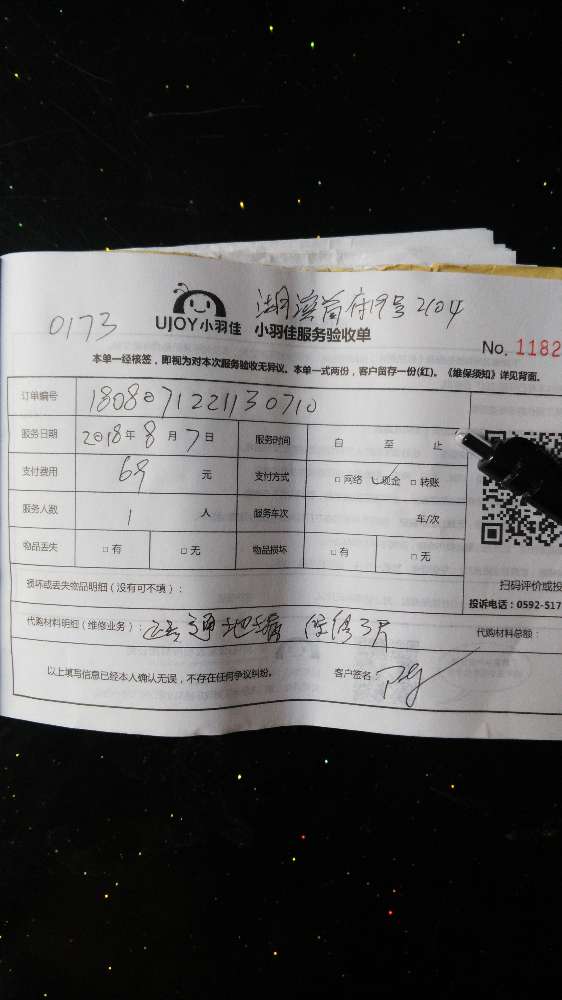 湖滨首府19号2104
0173 UJOY小羽佳 小羽佳服务验收单
No. 1182
本单一经核签，即视为对本次服务验收无异议。本单一式两份，客户留存一份(红)。《维保须知》详见背面。
订单编号 1808071221130710
服务日期 2018年8月7日 服务时间 自 至 止
支付费用 69 元 支付方式 □网络 ✓现金 □转账
服务人数 1 人 服务车次 车/次
物品丢失 □有 □无 物品损坏 □有 □无
损坏或丢失物品明细（没有可不填）：
扫码评价或投
投诉电话：0592-517
代购材料明细（维修业务）： 疏通地漏 保修3天 代购材料总额：
以上填写信息已经本人确认无误，不存在任何争议纠纷。 客户签名：